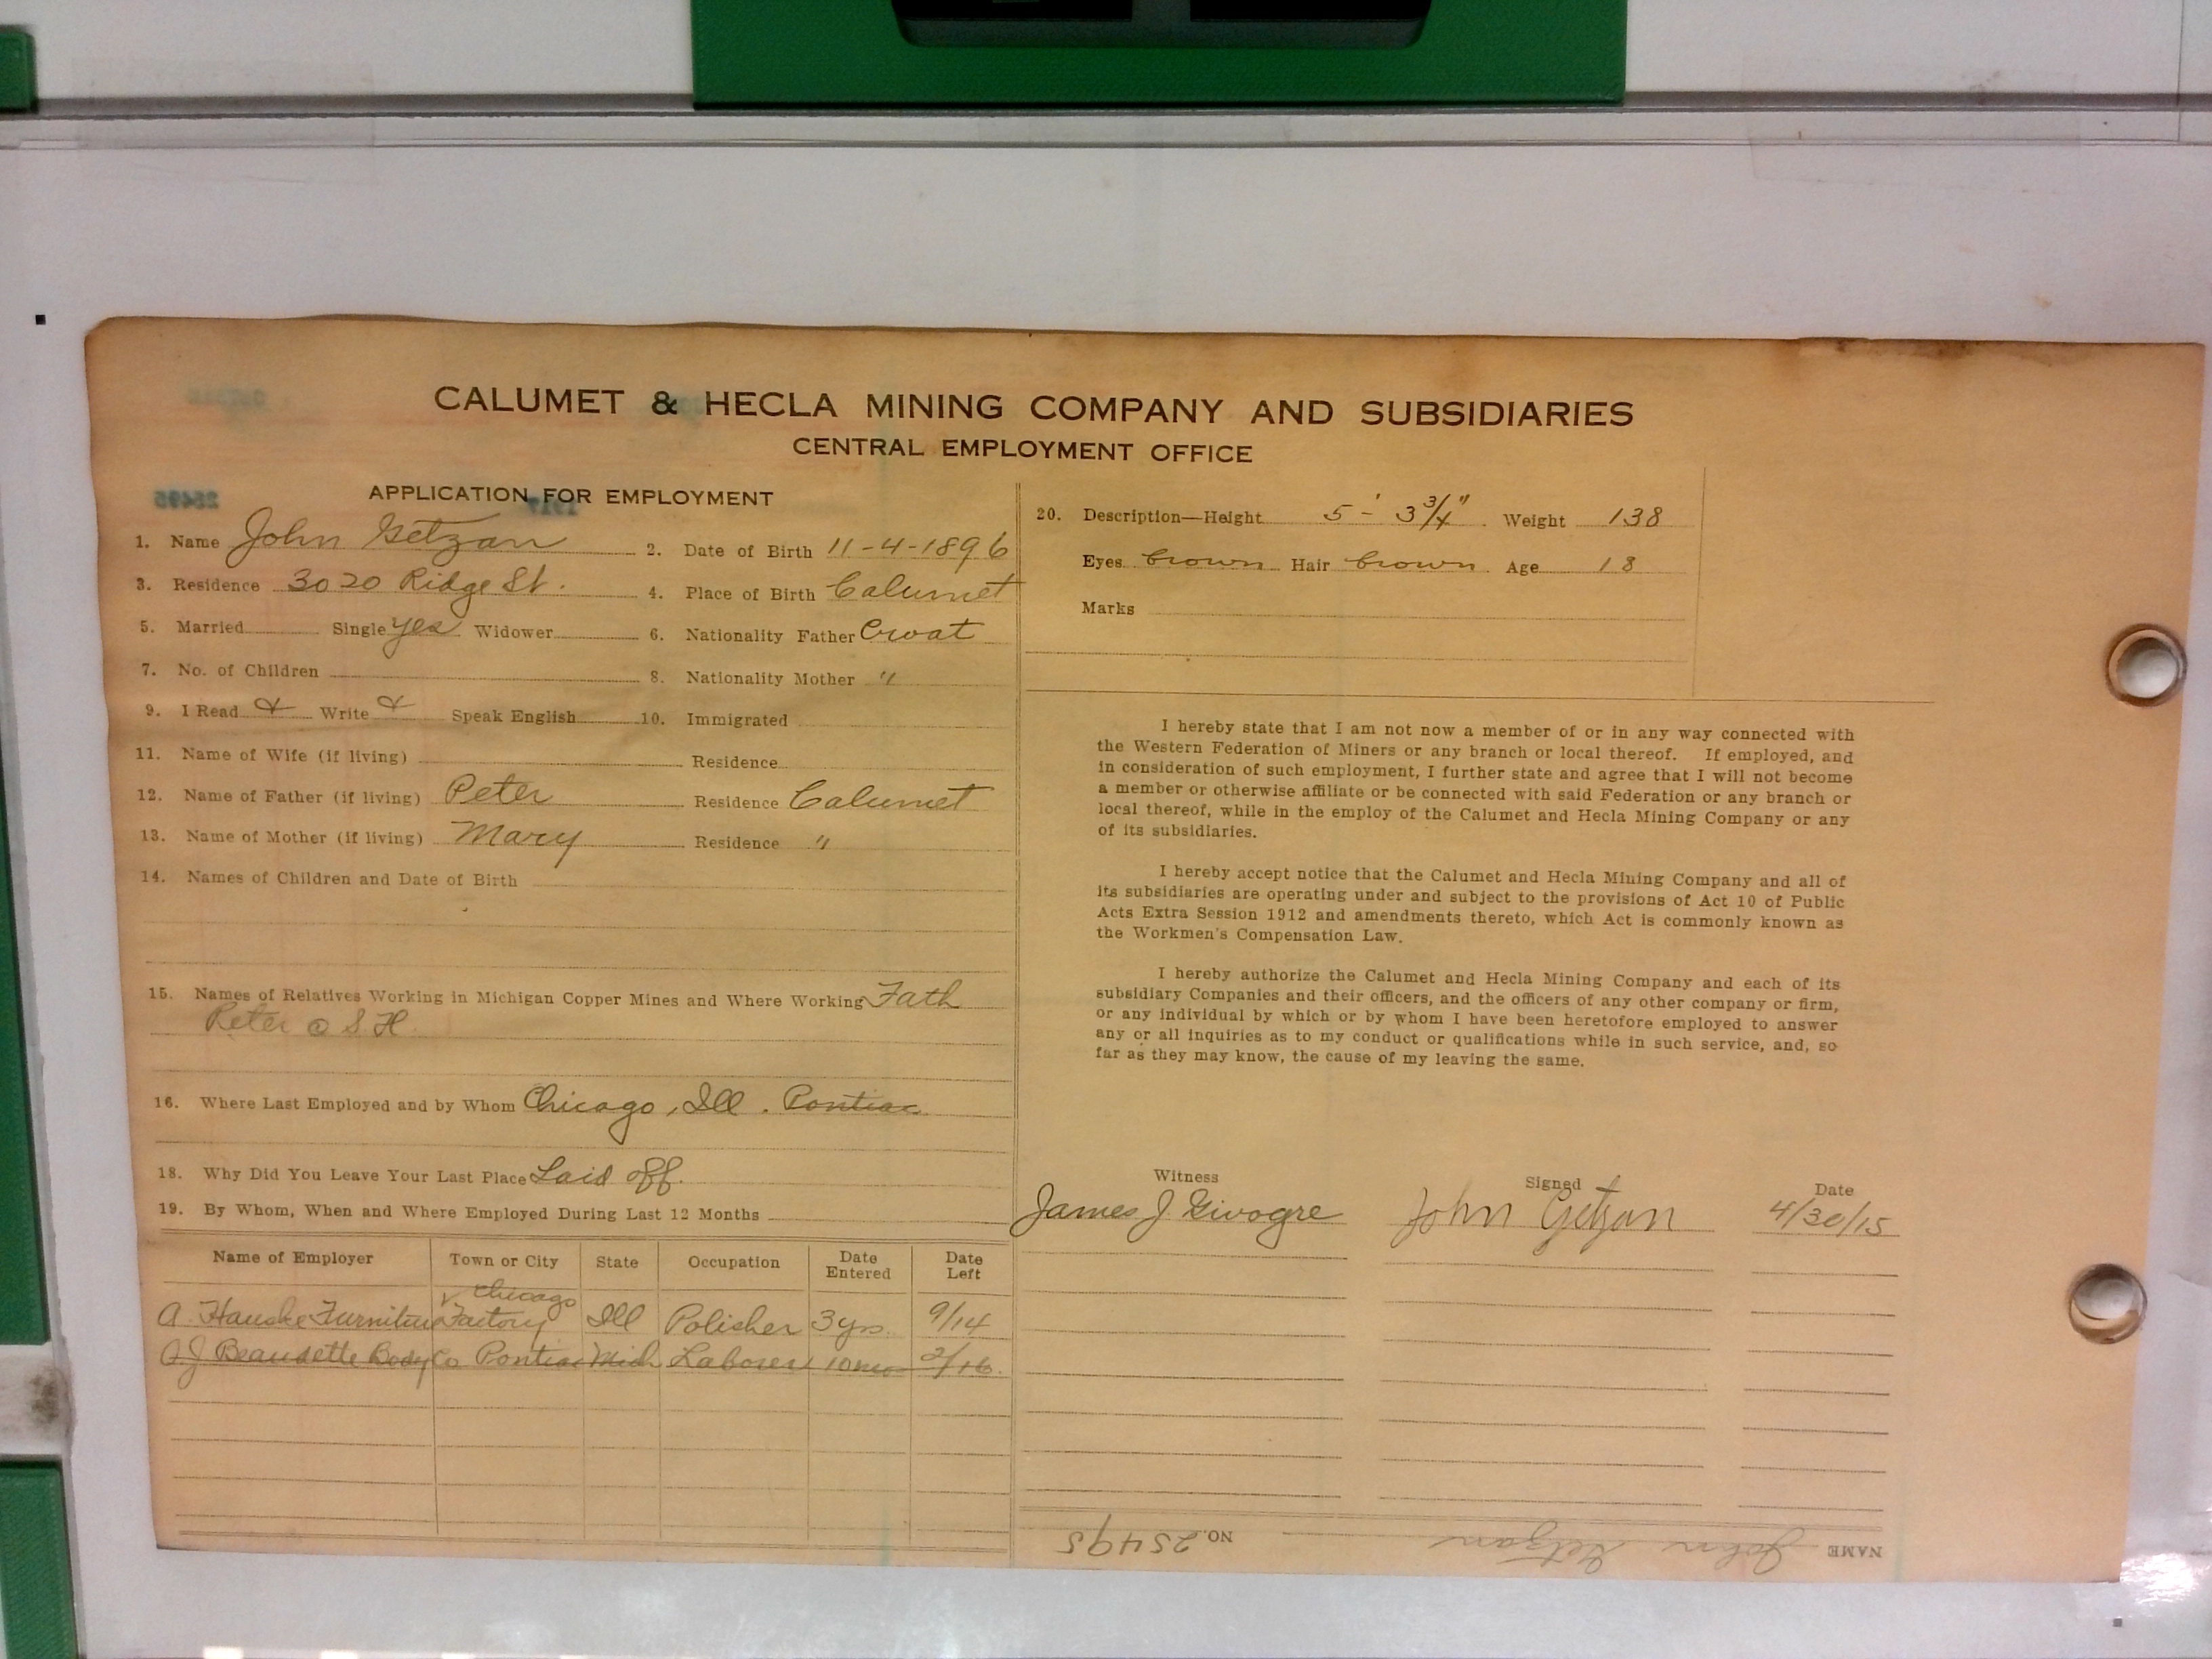 CALUMET & HECLA MINING COMPANY AND SUBSIDIARIES
CENTRAL EMPLOYMENT OFFICE
APPLICATION FOR EMPLOYMENT
25495
1917
1. Name John Getzan 2. Date of Birth 11-4-1896
3. Residence 3020 Ridge St. 4. Place of Birth Calumet
5. Married Single yes Widower 6. Nationality Father Croat
7. No. of Children 8. Nationality Mother "
9. I Read & Write & Speak English 10. Immigrated
11. Name of Wife (if living) Residence
12. Name of Father (if living) Peter Residence Calumet
13. Name of Mother (if living) Mary Residence "
14. Names of Children and Date of Birth
15. Names of Relatives Working in Michigan Copper Mines and Where Working Fath
Peter @ S. H.
16. Where Last Employed and by Whom Chicago, Ill. Pontiac
18. Why Did You Leave Your Last Place Laid off.
19. By Whom, When and Where Employed During Last 12 Months
Name of Employer Town or City State Occupation Date Entered Date Left
Chicago
A. Furniture Factory Ill Polisher 3 yrs. 9/14
O J Beaudette Body Co Pontiac Mich Laborer 10 mo 2/16
20. Description—Height 5'- 3 3/4" Weight 138
Eyes brown Hair brown Age 18
Marks
I hereby state that I am not now a member of or in any way connected with
the Western Federation of Miners or any branch or local thereof. If employed, and
in consideration of such employment, I further state and agree that I will not become
a member or otherwise affiliate or be connected with said Federation or any branch or
local thereof, while in the employ of the Calumet and Hecla Mining Company or any
of its subsidiaries.
I hereby accept notice that the Calumet and Hecla Mining Company and all of
its subsidiaries are operating under and subject to the provisions of Act 10 of Public
Acts Extra Session 1912 and amendments thereto, which Act is commonly known as
the Workmen's Compensation Law.
I hereby authorize the Calumet and Hecla Mining Company and each of its
subsidiary Companies and their officers, and the officers of any other company or firm,
or any individual by which or by whom I have been heretofore employed to answer
any or all inquiries as to my conduct or qualifications while in such service, and, so
far as they may know, the cause of my leaving the same.
Witness Signed Date
James J. Givogre John Getzan 4/30/15
NAME John Getzan NO. 25495